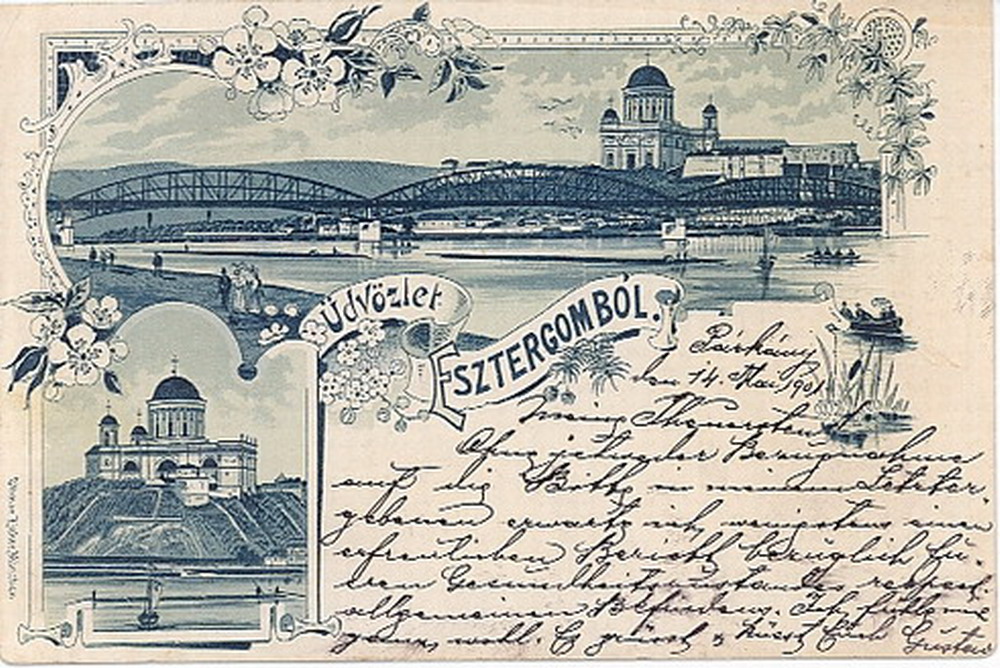 Üdvözlet
ESZTERGOMBÓL.
Párkány
den 14. Mai 1901
Meine Theuersten!
Ohne jedweder Bezugnahme
auf die Bitte in meinem Letzter-
gebenen erwarte ich wenigstens einen
erfreulichen Bericht bezüglich Eu-
ren Gesundheitszustandes respect.
allgemeinen Befindens. Ich fühle mich
ganz wohl. Es grüsst & küsst Euch Gustav